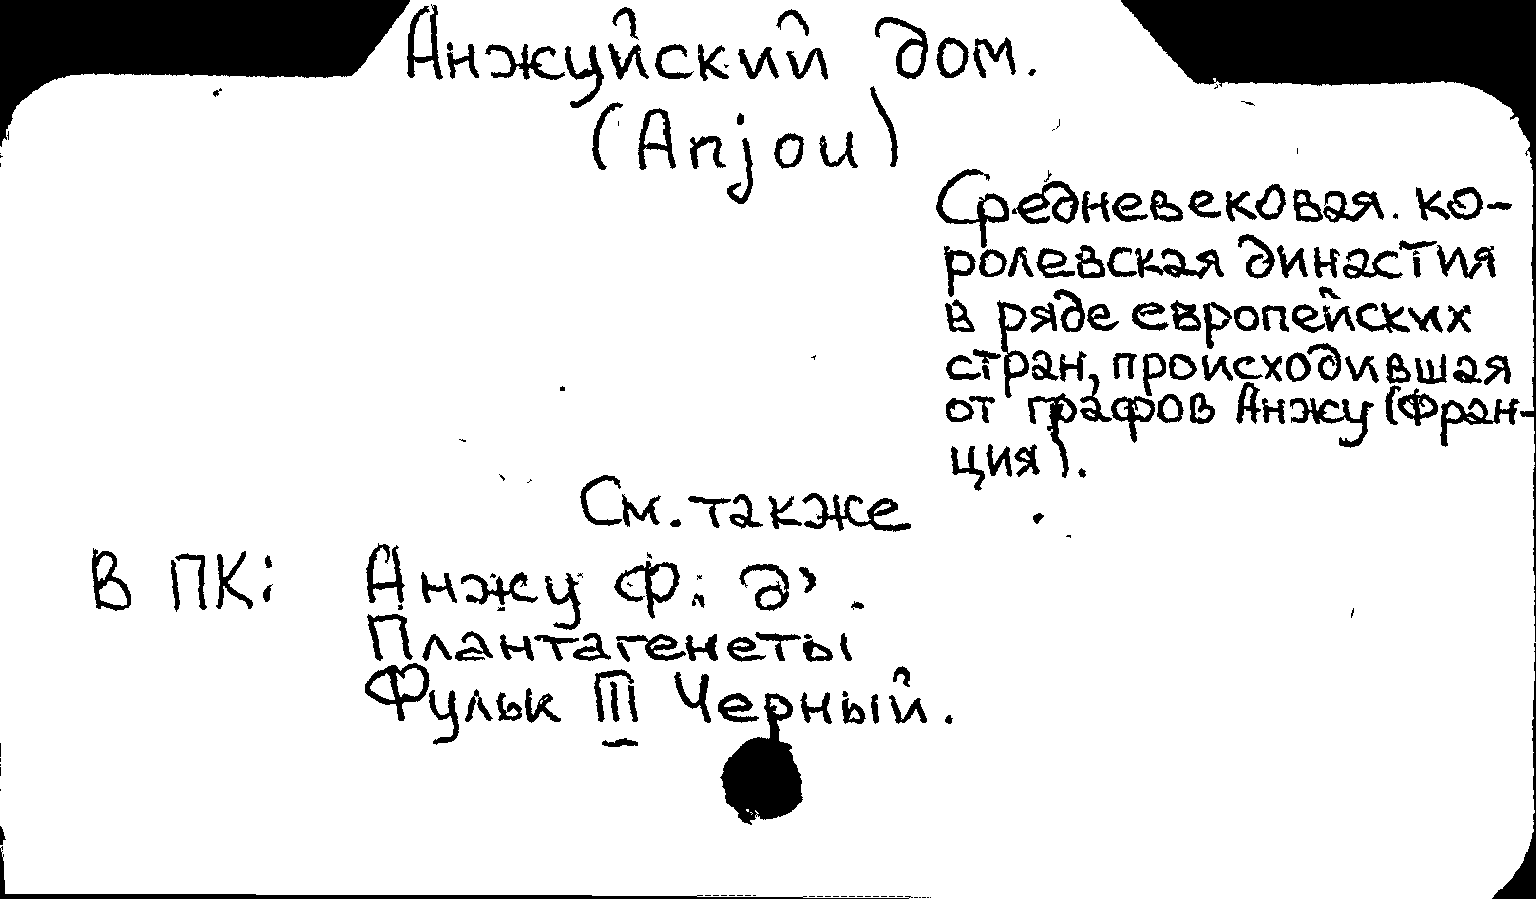 Анжуйский дом.
(Anjou)
Средневековая ко-
ролевская династия
в ряде европейских
стран, происходившая
от графов Анжу (Фран-
ция).
См. также
В ПК: Анжу Ф. д'.
Плантагенеты
Фульк III Черный.